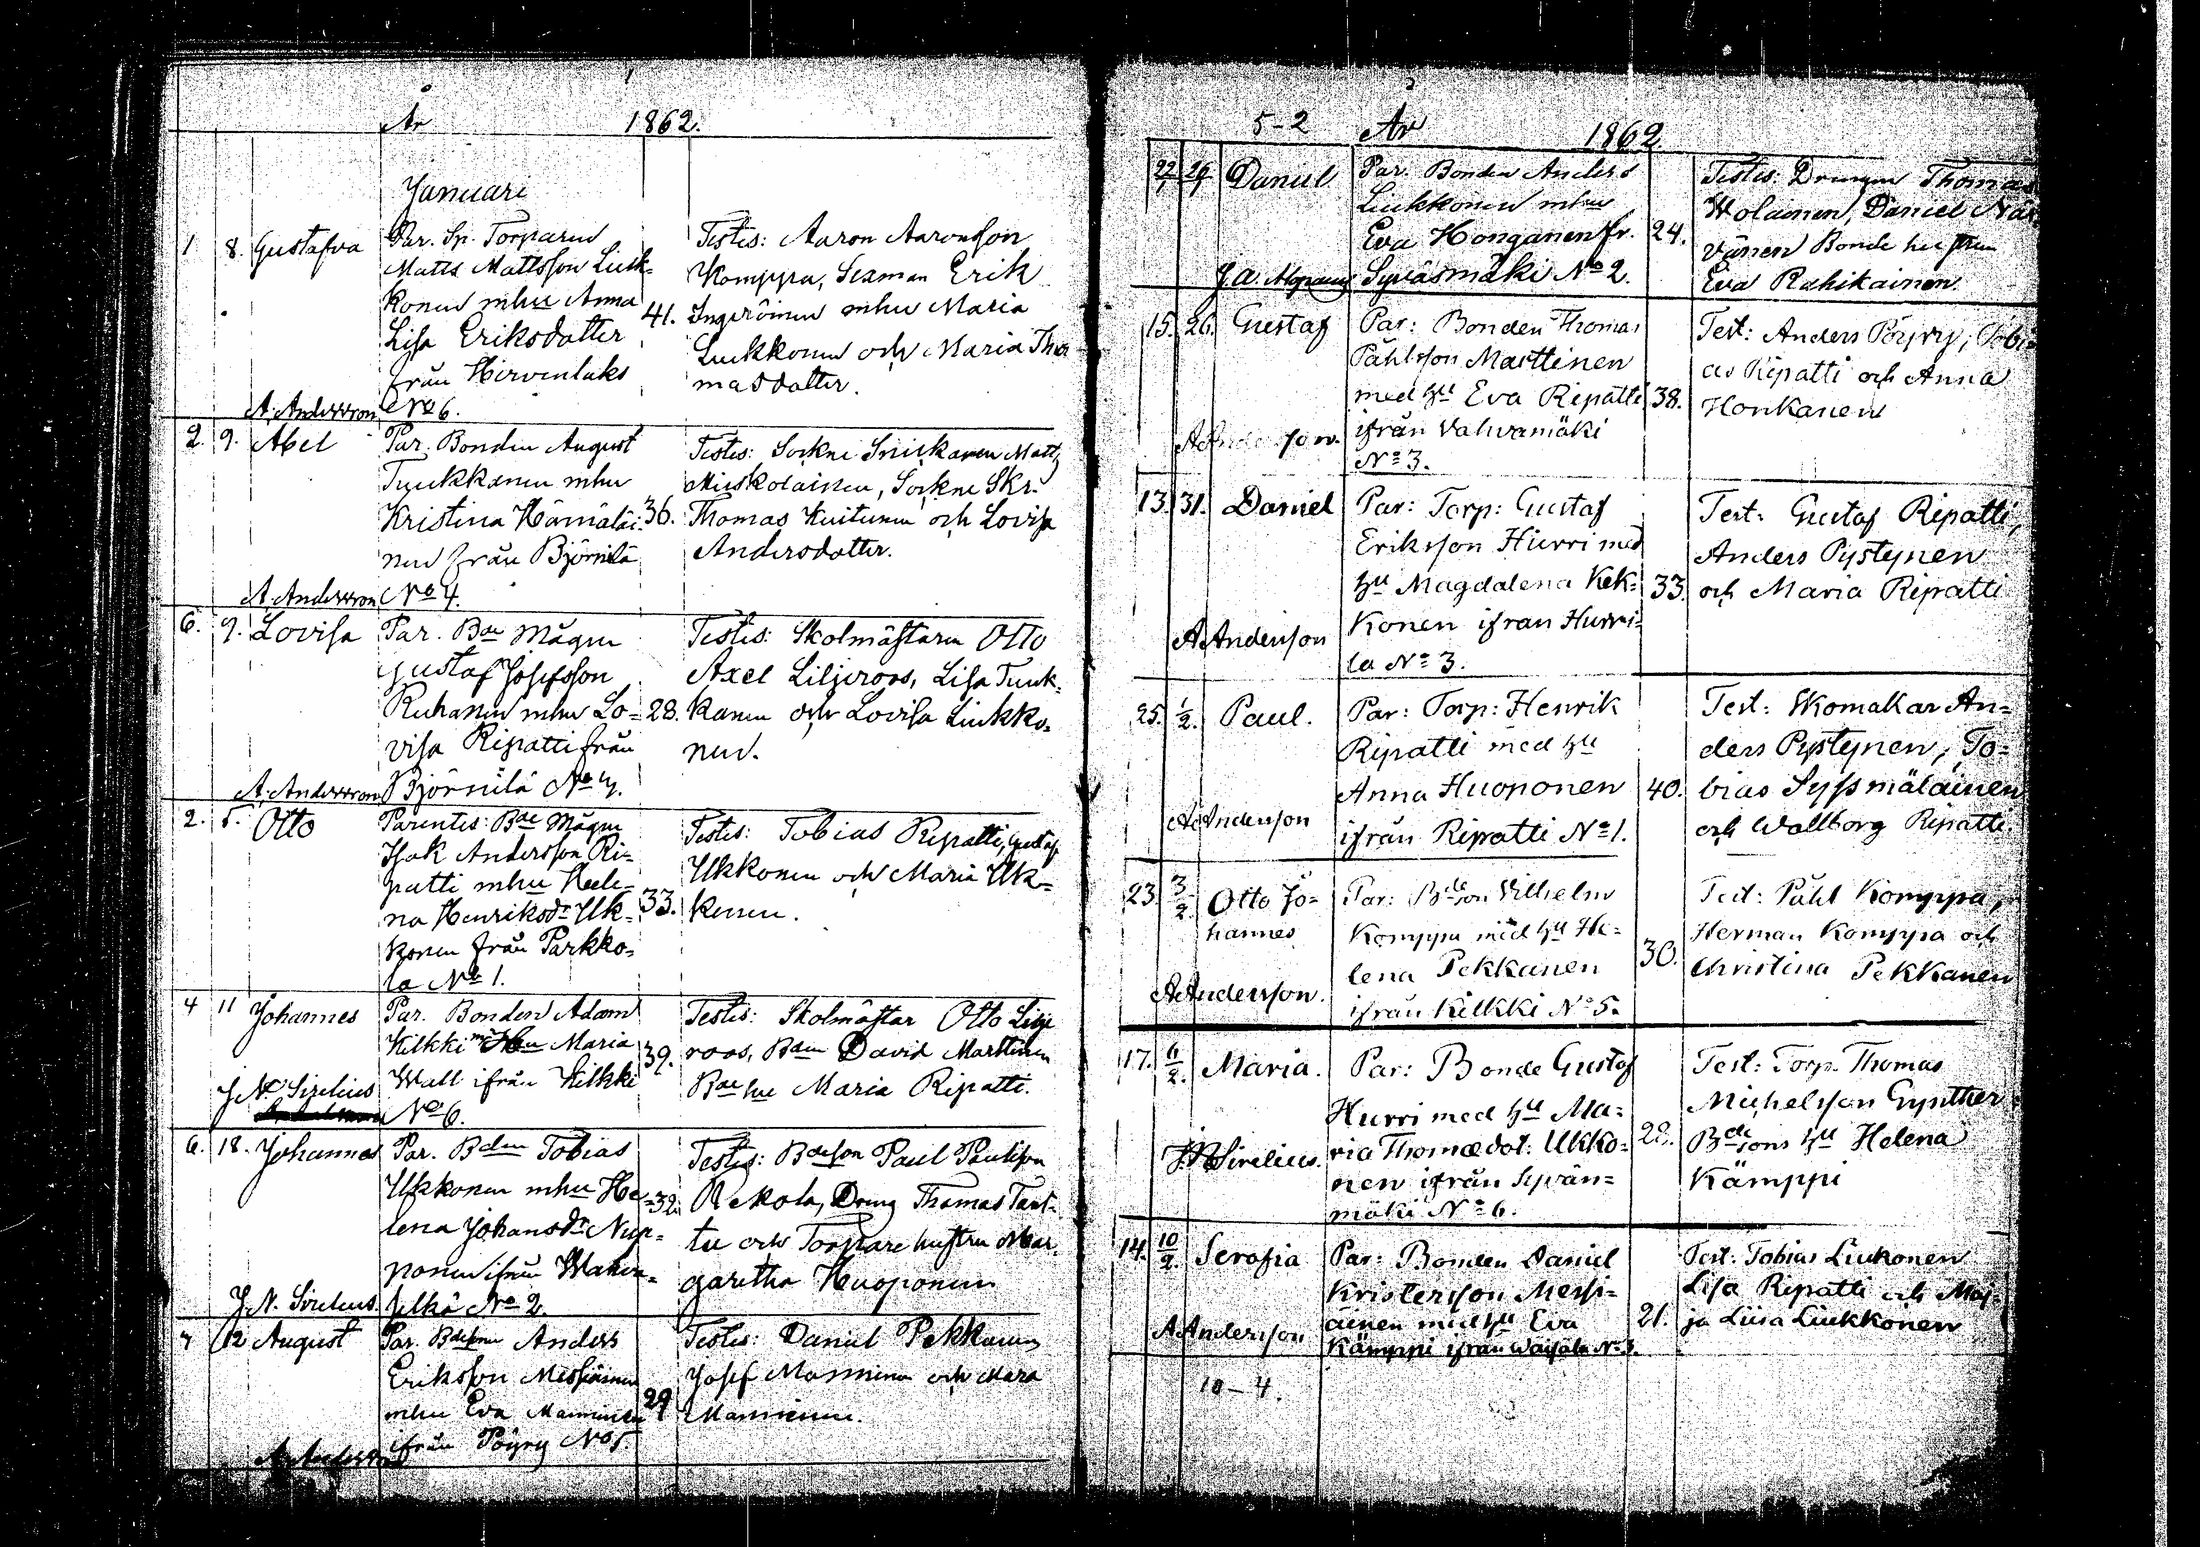 År 1862.
Januari
1 8. Gustafva Par. Sp. Torparen
Matts Mattsson Liuk-
konen mhu Anna
Lisa Eriksdotter
från Hirvenlaks
No 6.
A. Andersson
41.
Testis: Aaron Aaronsson
Komppa, Sexman Erik
Ingeröinen mhu Maria
Liukkonen och Maria Tho-
masdotter.
2. 9. Abel Par. Bonden August
Tuukkanen mhu
Kristina Hämäläi-
nen från Björnilä
No 4.
A. Andersson
36.
Testis: Sockne Snickaren Matts
Sockne Skr.
Thomas Kuitunen och Lovisa
Andersdotter.
6. 9. Lovisa Par. Bde Mågen
Gustaf Josefsson
Ruhanen mhu Lo-
visa Ripatti från
Björnilä No 4.
A. Andersson
28.
Testis: Skolmästaren Otto
Axel Liljeroos, Lisa Tuuk-
kanen och Lovisa Liukko-
nen.
2. 5. Otto Parentes: Bde Mågen
Isak Andersson Ri-
patti mhu Hele-
na Henriksdr Uk-
konen från Parkko-
la No 1.
33.
Testis: Tobias Ripatti, Gustaf
Ukkonen och Maria Uk-
konen.
4 11 Johannes Par. Bonden Adam
Kilkki mhu Maria
Wall ifrån Kilkki
No 6.
J. N. Sirelius
39.
Testis: Skolmästar Otto Lilje
roos, Bden David Marttinen
Bde hu Maria Ripatti.
6. 18. Johannes Par. Bden Tobias
Ukkonen mhu He-
lena Johansdr Nup-
ponen ifrån Waher-
jelkä No 2.
J. N. Sirelius.
32.
Testis: Bdeson Paul Paulsson
Rekola, Dreng Thomas Tant-
tu och Torpare hustru Mar-
garetha Huoponen
7 12 August Par. Bdeson Anders
Eriksson Messiäinen
mhu Eva Manninen
ifrån Pöyry No 5.
A. Andersson
29
Testis: Daniel Pekkanen
Josef Manninen och Maria
Manninen.
5-2 År 1862
22/1 26/1 Daniel Par. Bonden Anders
Liukkonen mhu
Eva Honganen fr.
Syväsmäki No 2.
J. A.
24.
Testes: Drengen Thomas
Holainen, Daniel När-
vänen Bonde hustrun
Eva Rahikainen.
15. 26. Gustaf Par: Bonden Thomas
Påhlsson Marttinen
med hu Eva Ripatti
ifrån Vahvamäki
No 3.
A Andersson.
38.
Test: Anders Pöyry, Tobi-
as Ripatti och Anna
Honkanen
13. 31. Daniel Par: Torp: Gustaf
Eriksson Hurri med
hu Magdalena Kek-
konen ifrån Hurri-
la No 3.
A Andersson
33.
Test: Gustaf Ripatti,
Anders Pystynen
och Maria Ripatti
25. 1/2. Paul. Par: Torp: Henrik
Ripatti med hu
Anna Huoponen
ifrån Ripatti No 1.
A Andersson
40.
Test: Skomakar An-
ders Pystynen, To-
bias Syssmäläinen
och Wallborg Ripatti.
23. 3/2. Otto Jo-
hannes
Par: Bdeson Vilhelm
Komppa med hu He-
lena Pekkanen
ifrån Kilkki No 5.
A Andersson.
30.
Test: Påhl Komppa,
Herman Komppa och
Christina Pekkanen
17. 6/2. Maria. Par: Bonde Gustaf
Hurri med hu Ma-
ria Thomædot: Ukko-
nen ifrån Syvän-
mäki No 6.
J. N. Sirelius.
28.
Test: Torp. Thomas
Michelsson Gynther
Bdesons hu Helena
Kämppi
14. 10/2. Serafia Par: Bonden Daniel
Kristersson Messi-
äinen med hu Eva
Kämppi ifrån Waisälä No 3.
A Andersson
21.
Test: Tobias Liukonen
Lisa Ripatti och Maj-
ja Liisa Liukkonen
10-4.